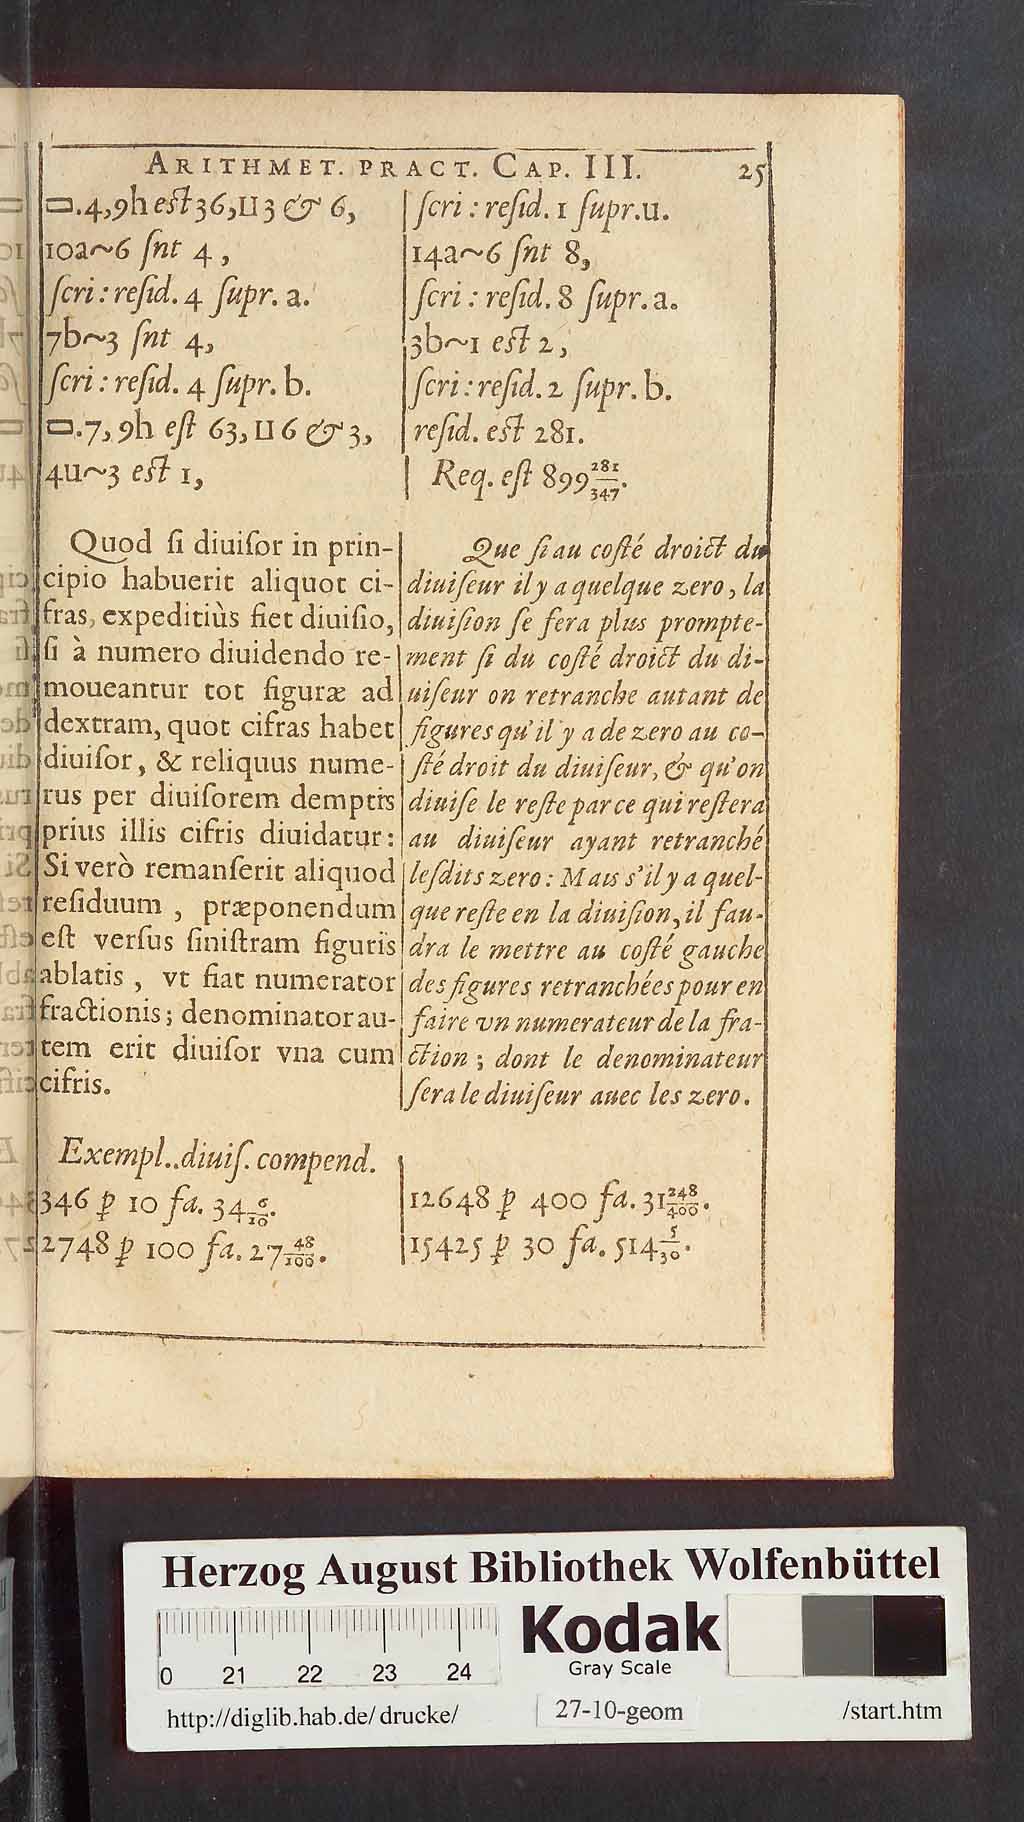 ARITHMET. PRACT. CAP. III. 25
▭.4,9h est 36, ⊔ 3 & 6,
10a~6 ſnt 4,
ſcri : reſid. 4 ſupr. a.
7b~3 ſnt 4,
ſcri : reſid. 4 ſupr. b.
▭.7,9h eſt 63, ⊔ 6 & 3,
4u~3 est 1,
ſcri : reſid. 1 ſupr.u.
14a~6 ſnt 8,
ſcri : reſid. 8 ſupr. a.
3b~1 est 2,
ſcri : reſid. 2 ſupr. b.
reſid. est 281.
Req. eſt 899 281/347.
Quod ſi diuiſor in prin-
cipio habuerit aliquot ci-
fras, expeditiùs fiet diuiſio,
ſi à numero diuidendo re-
moueantur tot figuræ ad
dextram, quot cifras habet
diuiſor, & reliquus nume-
rus per diuiſorem demptis
prius illis cifris diuidatur:
Si verò remanſerit aliquod
reſiduum , præponendum
eſt verſus ſiniſtram figuris
ablatis , vt fiat numerator
fractionis; denominator au-
tem erit diuiſor vna cum
cifris.
Que ſi au coſté droict du
diuiſeur il y a quelque zero, la
diuiſion ſe fera plus prompte-
ment ſi du coſté droict du di-
uiſeur on retranche autant de
figures qu'il y a de zero au co-
ſté droit du diuiſeur, & qu'on
diuiſe le reſte par ce qui reſtera
au diuiſeur ayant retranché
leſdits zero: Mais s'il y a quel-
que reſte en la diuiſion, il fau-
dra le mettre au coſté gauche
des figures retranchées pour en
faire vn numerateur de la fra-
ction ; dont le denominateur
ſera le diuiſeur auec les zero.
Exempl..diuiſ. compend.
346 ꝑ 10 fa. 34 6/10.
2748 ꝑ 100 fa. 27 48/100.
12648 ꝑ 400 fa. 31 248/400.
15425 ꝑ 30 fa. 514 5/30.
Herzog August Bibliothek Wolfenbüttel
Kodak
Gray Scale
0 21 22 23 24
http://diglib.hab.de/drucke/ 27-10-geom /start.htm